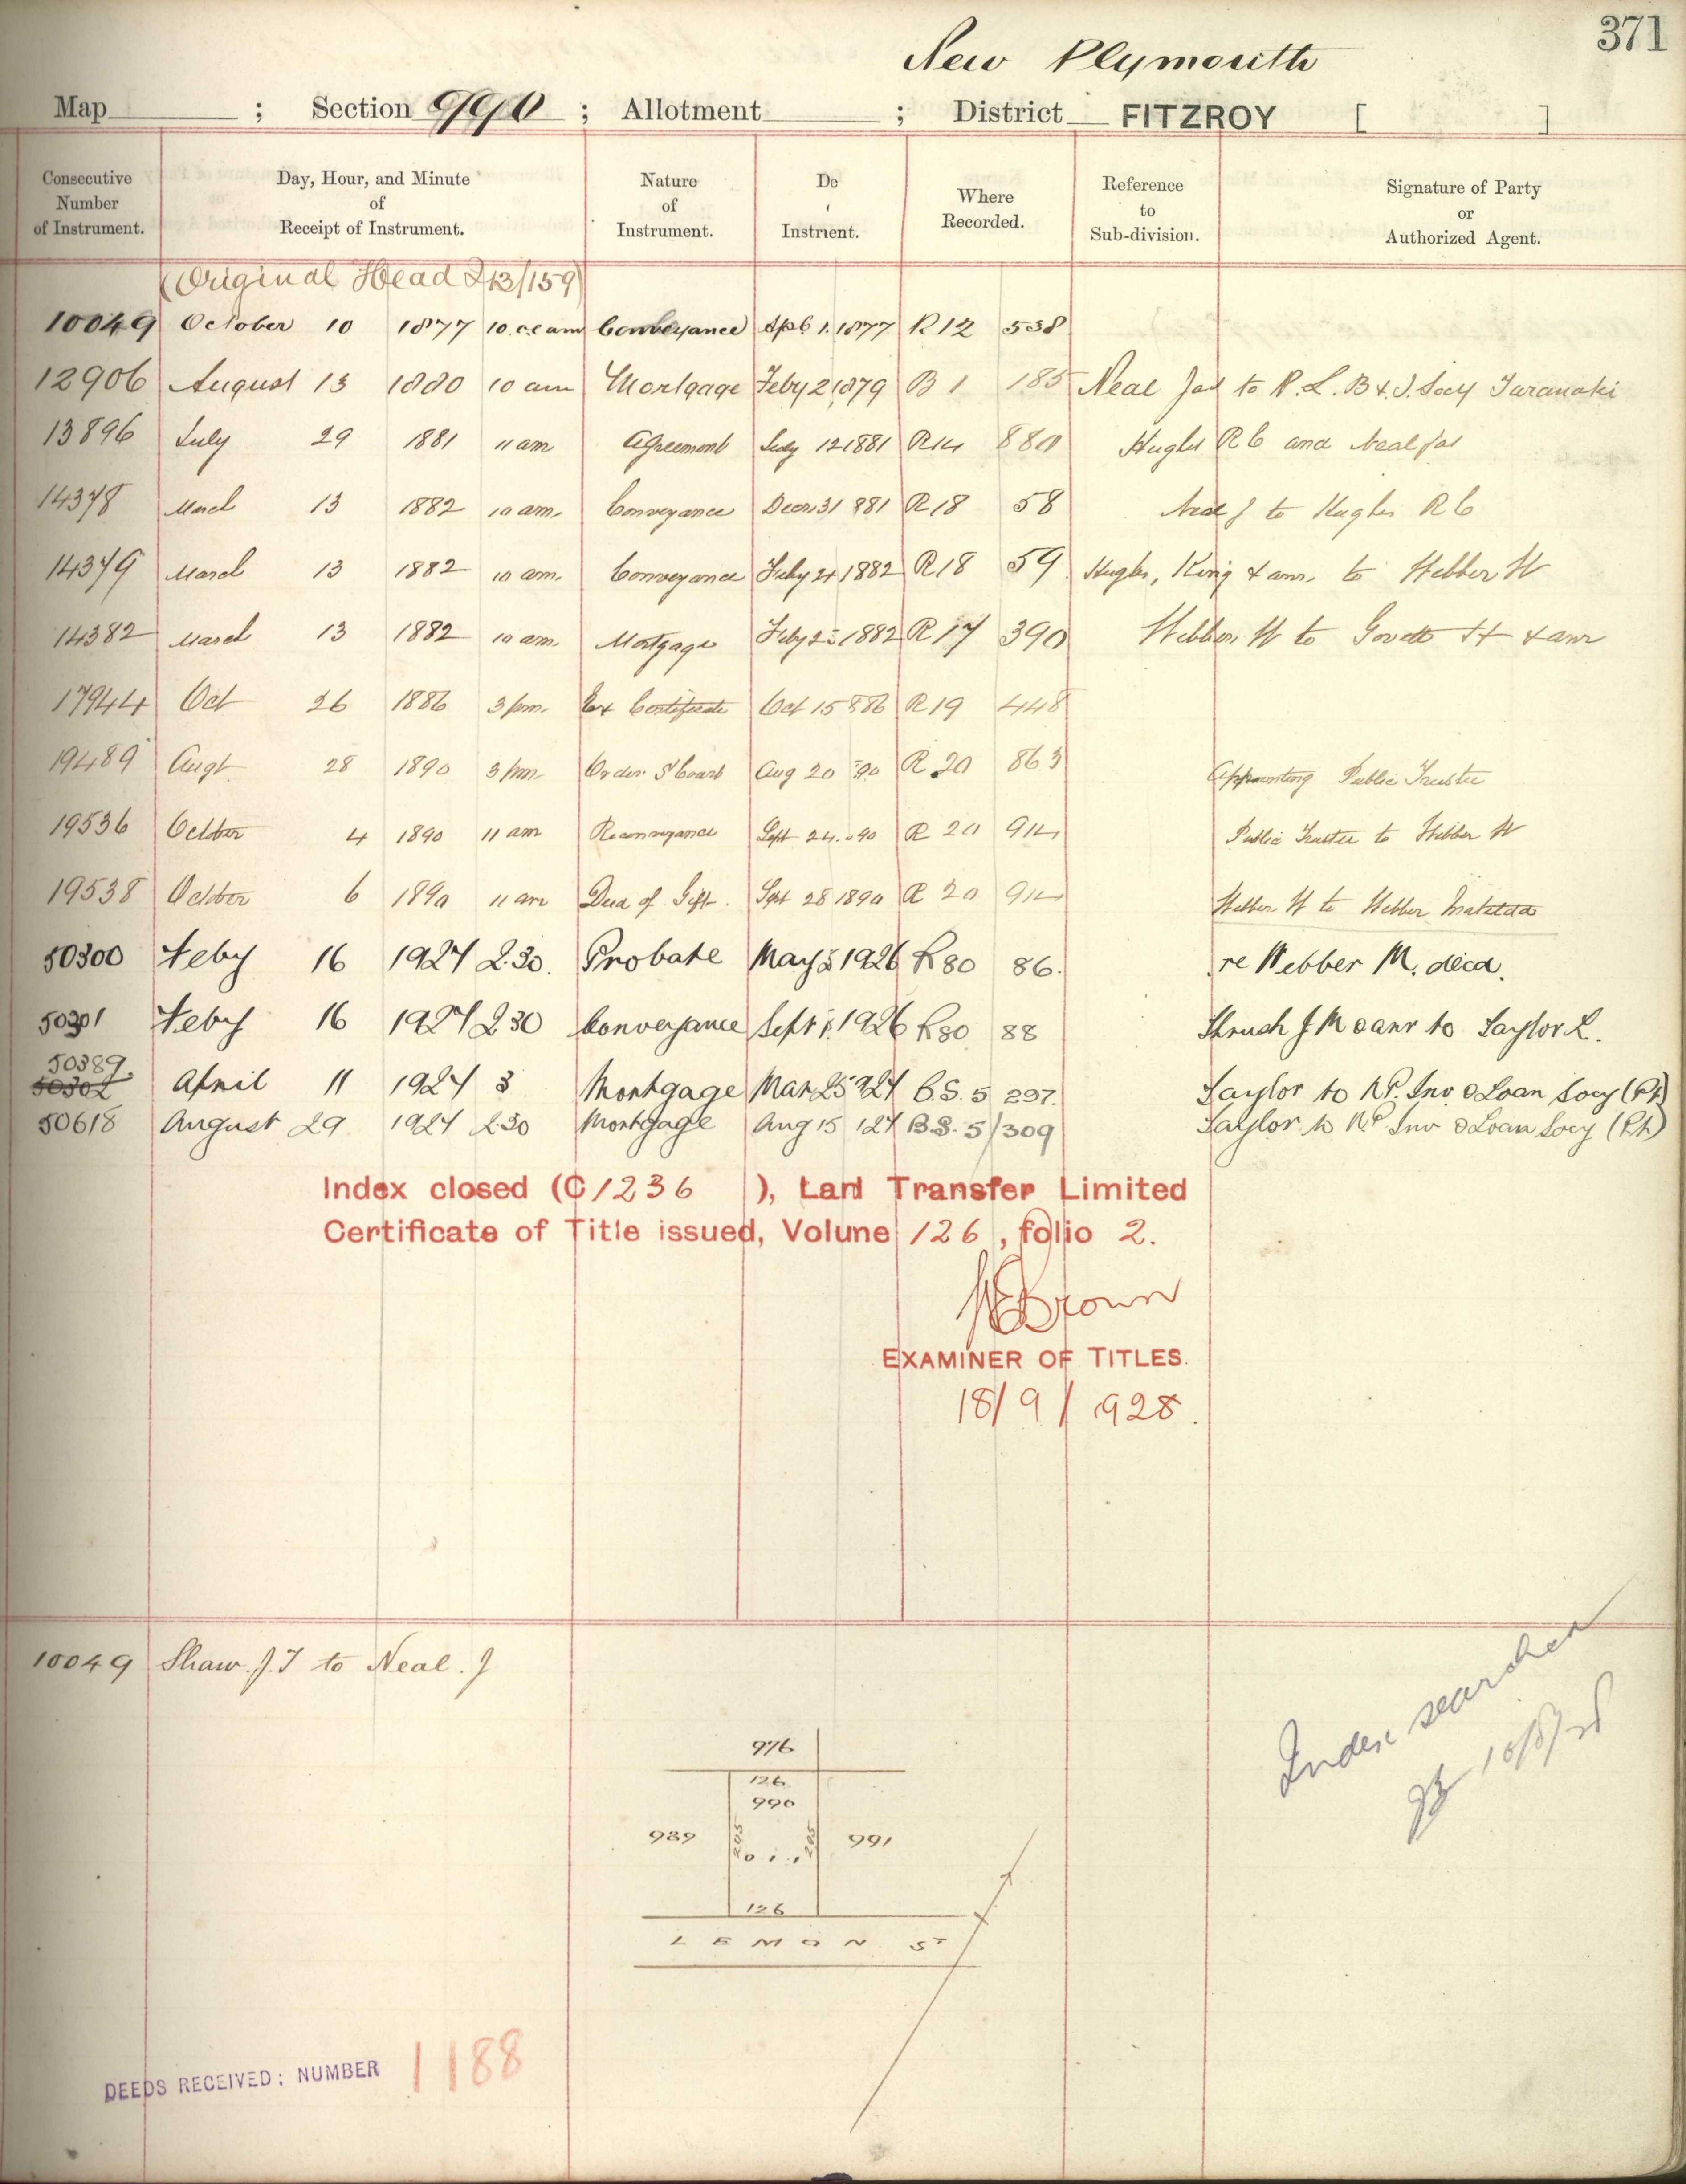 371
New Plymouth
Map ; Section 990 ; Allotment ; District FITZROY [ ]
Consecutive Number of Instrument. Day, Hour, and Minute of Receipt of Instrument. Nature of Instrument. De Instrient. Where Recorded. Reference to Sub-division. Signature of Party or Authorized Agent.
(Original Head I 13/159)
10049 October 10 1877 10 am Conveyance 1877 R12 538
12906 August 13 1880 10 am Mortgage Feby 2 1879 B 1 185 Neal Jas to P.L.B & I. Socy Taranaki
13896 July 29 1881 11 am Agreement July 12 1881 R14 880 Hughes R C and Neal Jas
14378 March 13 1882 10 am Conveyance Decr 31 881 R18 58 Neal J to Hughes R C
14379 March 13 1882 10 am Conveyance Feby 21 1882 R18 59 Hughes, King & anr to Webber W
14382 March 13 1882 10 am Mortgage Feby 1882 R 17 390 Webber W to Govett H & anr
17944 Oct 26 1886 3 pm Ex Certificate Oct 15 886 R19 448
19489 Augt 28 1890 3 pm Order S Court Aug 20 90 R 20 863 Appointing Public Trustee
19536 October 4 1890 11 am Reconveyance Sept 24 90 R 20 914 Public Trustee to Webber W
19538 October 6 1890 11 am Deed of Gift. Sept 28 1890 R 20 914 Webber W to Webber Matilda
50300 Feby 16 1927 2.30. Probate May 5 1926 R80 86. re Webber M. decd.
50301 Feby 16 1927 2 30 Conveyance Sept 1 1926 R80 88 Thrush J M & anr to Taylor L.
50389.
50302 April 11 1927 3 Mortgage Mar 25 927 B.S. 5 297. Taylor to N.P. Inv & Loan Socy (Pt)
50618 August 29 1927 2 30 Mortgage Aug 15 127 B.S. 5/309 Taylor to N.P. Inv & Loan Socy (Pt)
Index closed (C1236 ), Lard Transfer Limited
Certificate of Title issued, Volune 126, folio 2.
Brown
EXAMINER OF TITLES.
18/9/1928.
10049 Shaw. J.T to Neal. J
Index searched
10/8/28
976
126
990
989 205 205 991
0 . 1 . 1
126
LEMON ST
DEEDS RECEIVED: NUMBER 1188